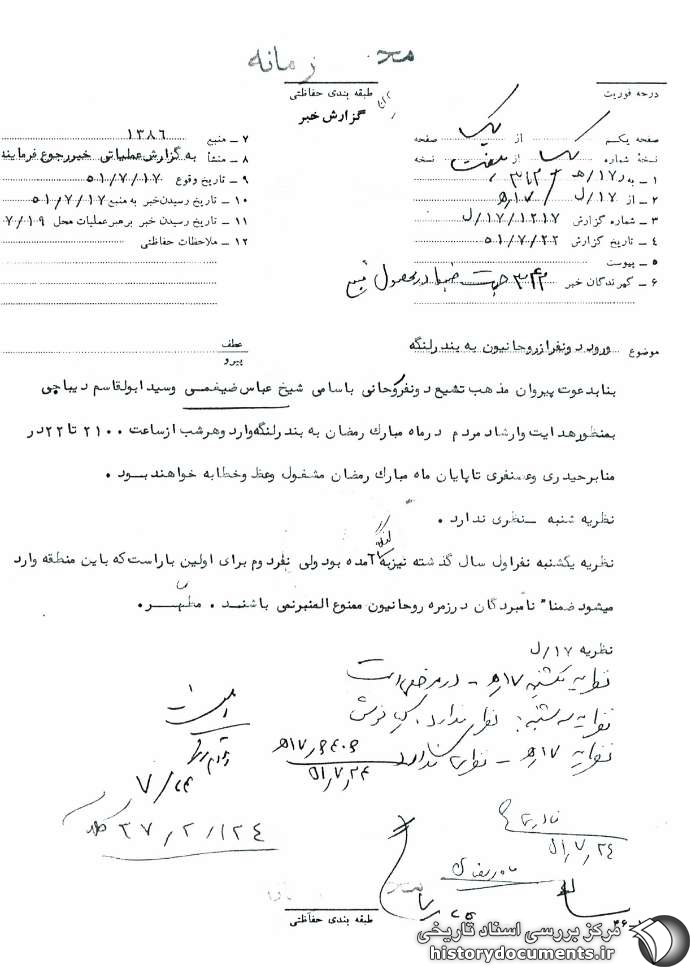 محرمانه
درجه فوریت
طبقه بندی حفاظتی
گزارش خبر
صفحه یکم از یک صفحه
نسخهٔ شماره یک از هفت نسخه
۱ – به ۳۴۲
۲ – از ۱۷/ل
۳ – شماره گزارش ۱۷/۱۲۱۷/ل
۴ – تاریخ گزارش ۵۱/۷/۲۲
۵ – پیوست
۶ – گیرندگان خبر
۷ – منبع ۱۳۸۶
۸ – منشأ به گزارش عملیاتی خبر رجوع فرمایند
۹ – تاریخ وقوع ۵۱/۷/۱۷
۱۰ – تاریخ رسیدن خبر به منبع ۵۱/۷/۱۷
۱۱ – تاریخ رسیدن خبر برهبر عملیات محل ۷/۱۹
۱۲ – ملاحظات حفاظتی
موضوع ورود دونفر از روحانیون به بندرلنگه
عطف
پیرو
بنابدعوت پیروان مذهب تشیع دونفر روحانی باسامی شیخ عباس ضیغمی وسید ابوالقاسم دیباچی
بمنظور هدایت وارشاد مردم درماه مبارک رمضان به بندرلنگه وارد وهرشب ازساعت ۲۱۰۰ تا ۲۲ در
منابر حیدری وعسنفری تاپایان ماه مبارک رمضان مشغول وعظ وخطابه خواهند بود .
نظریه شنبه – نظری ندارد .
نظریه یکشنبه نفراول سال گذشته نیز به لنگه آمده بود ولی نفردوم برای اولین باراست که باین منطقه وارد
میشود ضمنا" نامبردگان درزمره روحانیون ممنوع المنبر نمی باشند . مطهر .
نظریه ۱۷/ل
نظریه یکشنبه ۱۷/ھ – در مرخصی است
نظریه سه شنبه : نظری ندارد .
نظریه ۱۷/ھ – نظری ندارد
۵۱/۷/۲۴
۳۷/۲/۱۲۴
۵۱/۷/۲۴
طبقه بندی حفاظتی
مرکز بررسی اسناد تاریخی
historydocuments.ir